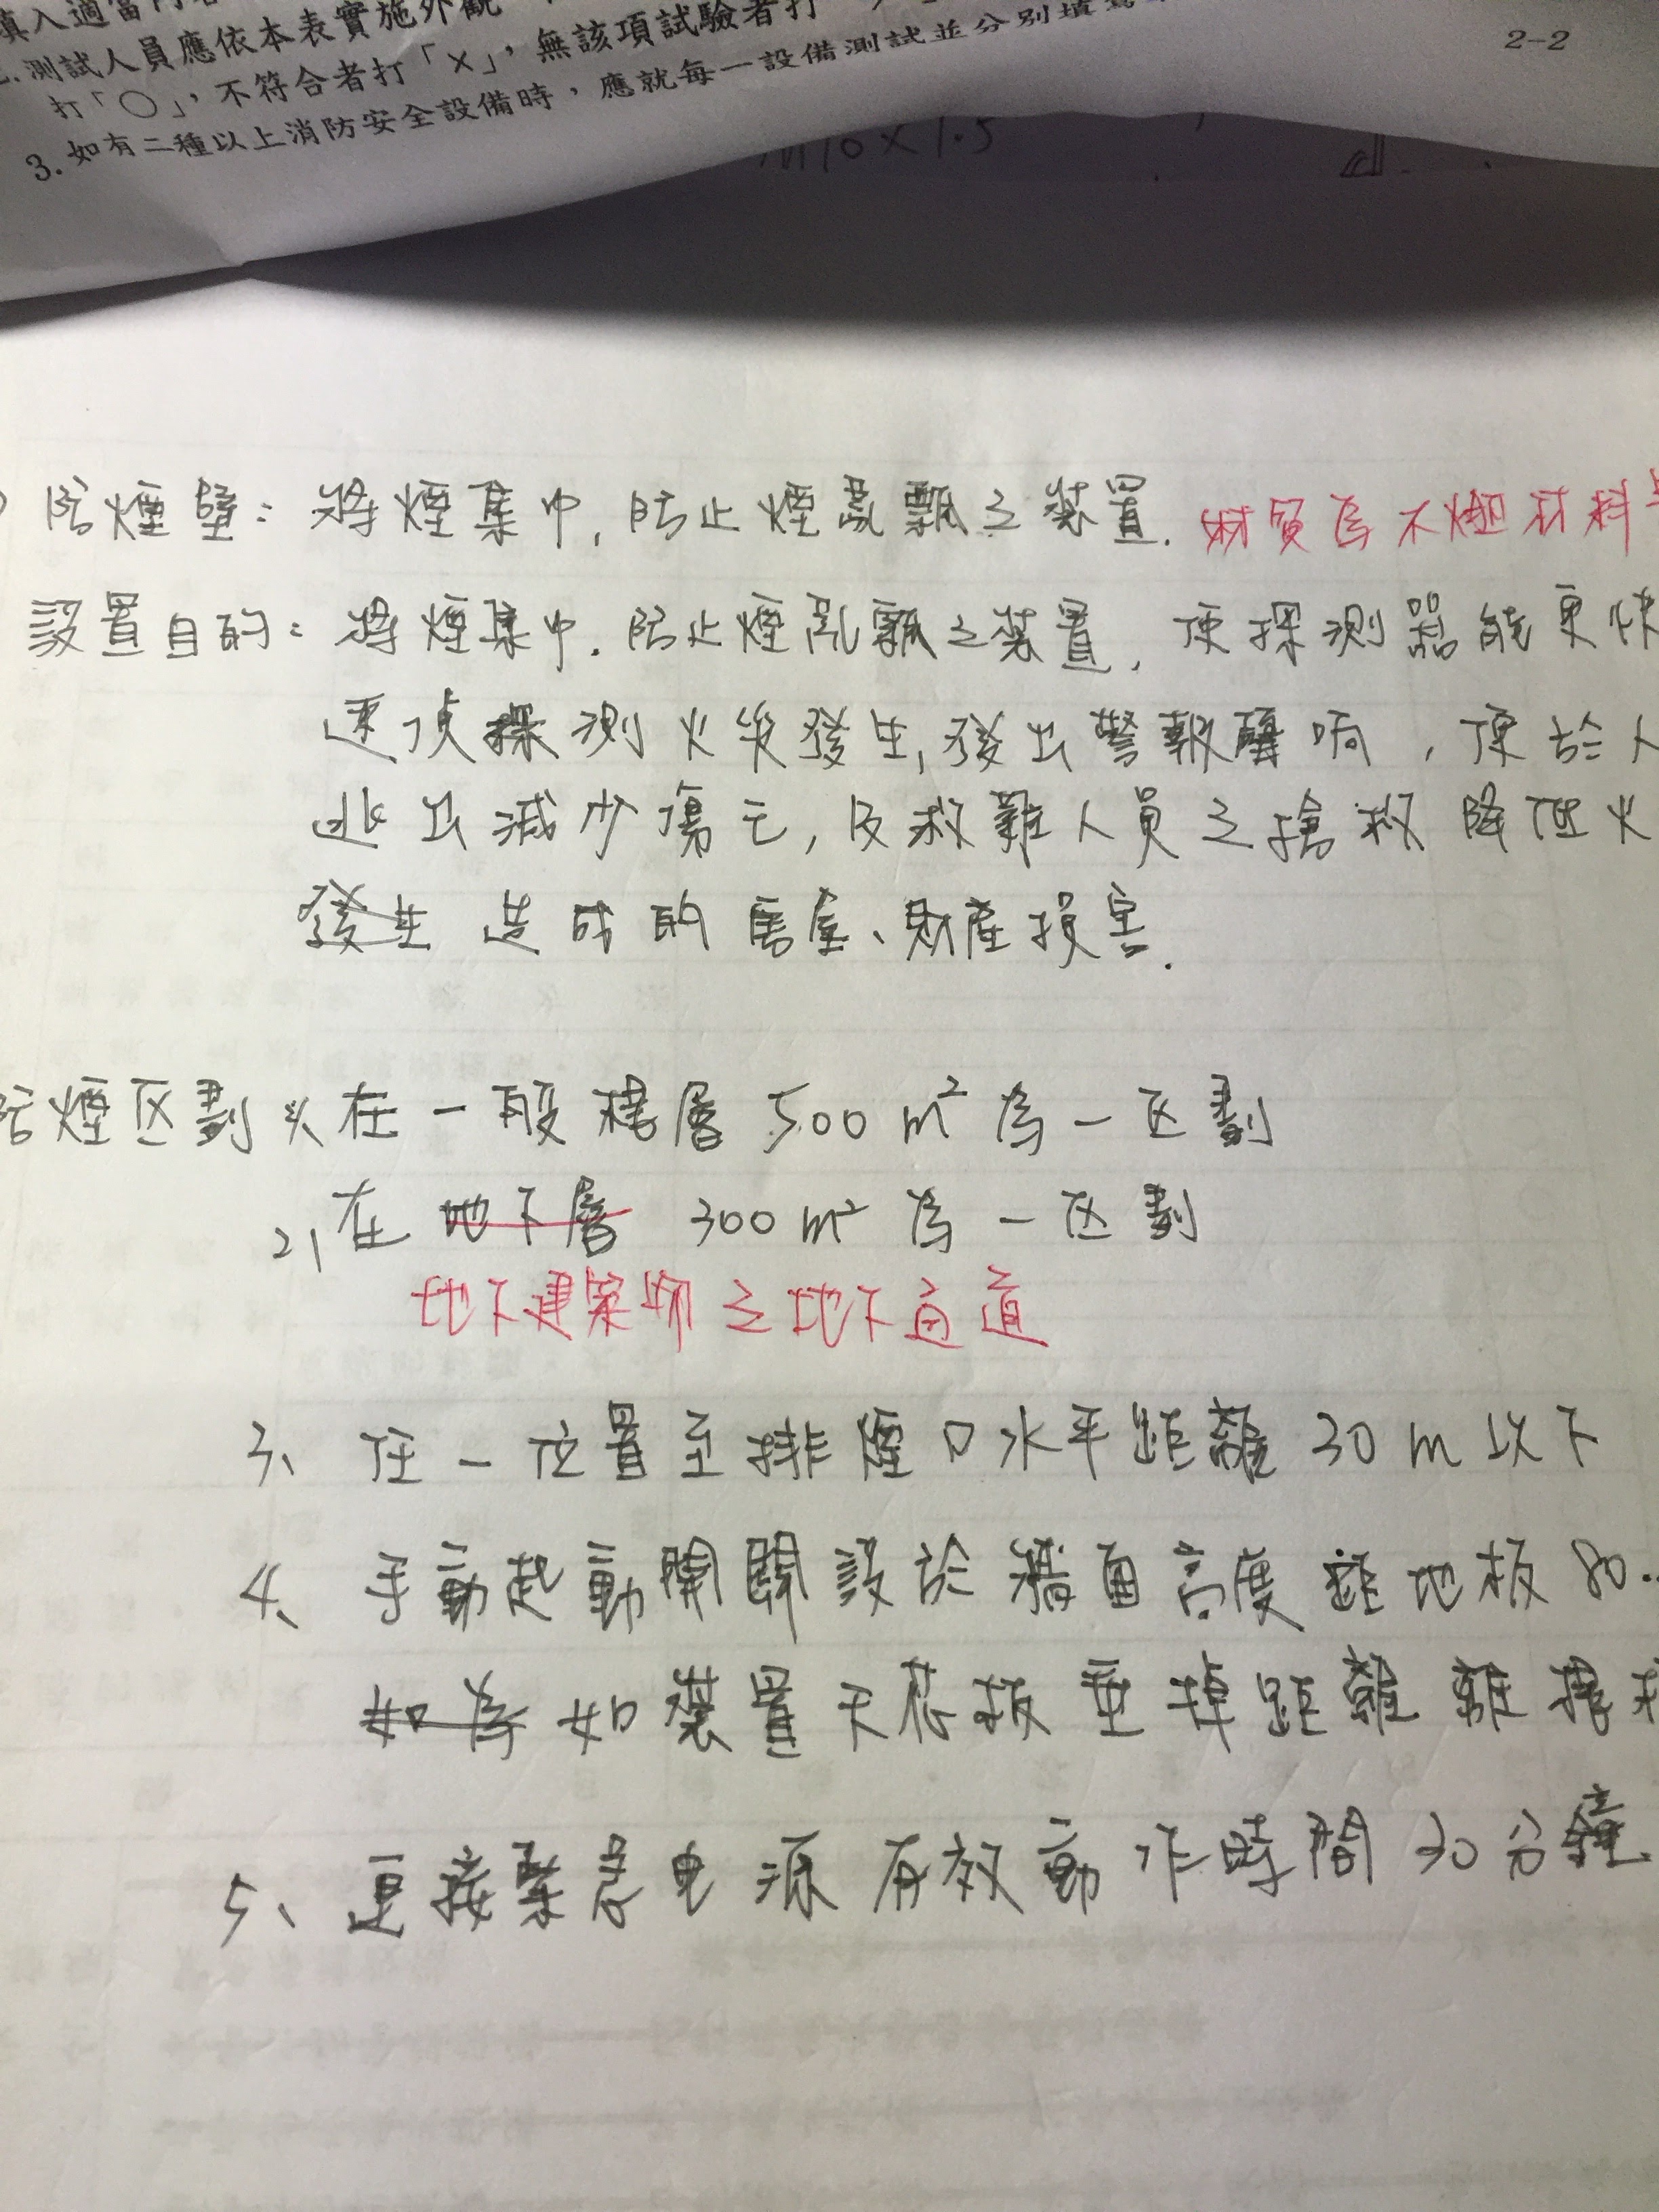 填入適當內
2.測試人員應依本表實施外觀
打「○」,不符合者打「×」,無該項試驗者打
3.如有二種以上消防安全設備時,應就每一設備測試並分別填
2-2
M10×1.5
防煙壁:將煙集中,防止煙亂飄之裝置.材質為不燃材料
設置目的:將煙集中.防止煙亂飄之裝置,使探測器能更快
速偵探測火災發生,發出警報聲响,便於人
逃出減少傷亡,及救難人員之搶救降低火
發生造成的房屋、財產損害.
防煙区劃1、在一般樓層500m²為一区劃
2、在地下層300m²為一区劃
地下建築物之地下通道
3、任一位置至排煙口水平距離30m以下
4、手動起動開關設於牆面高度距地板80
如為如裝置天花板垂掉距離離樓
5、連接緊急电源有效動作時間30分鐘